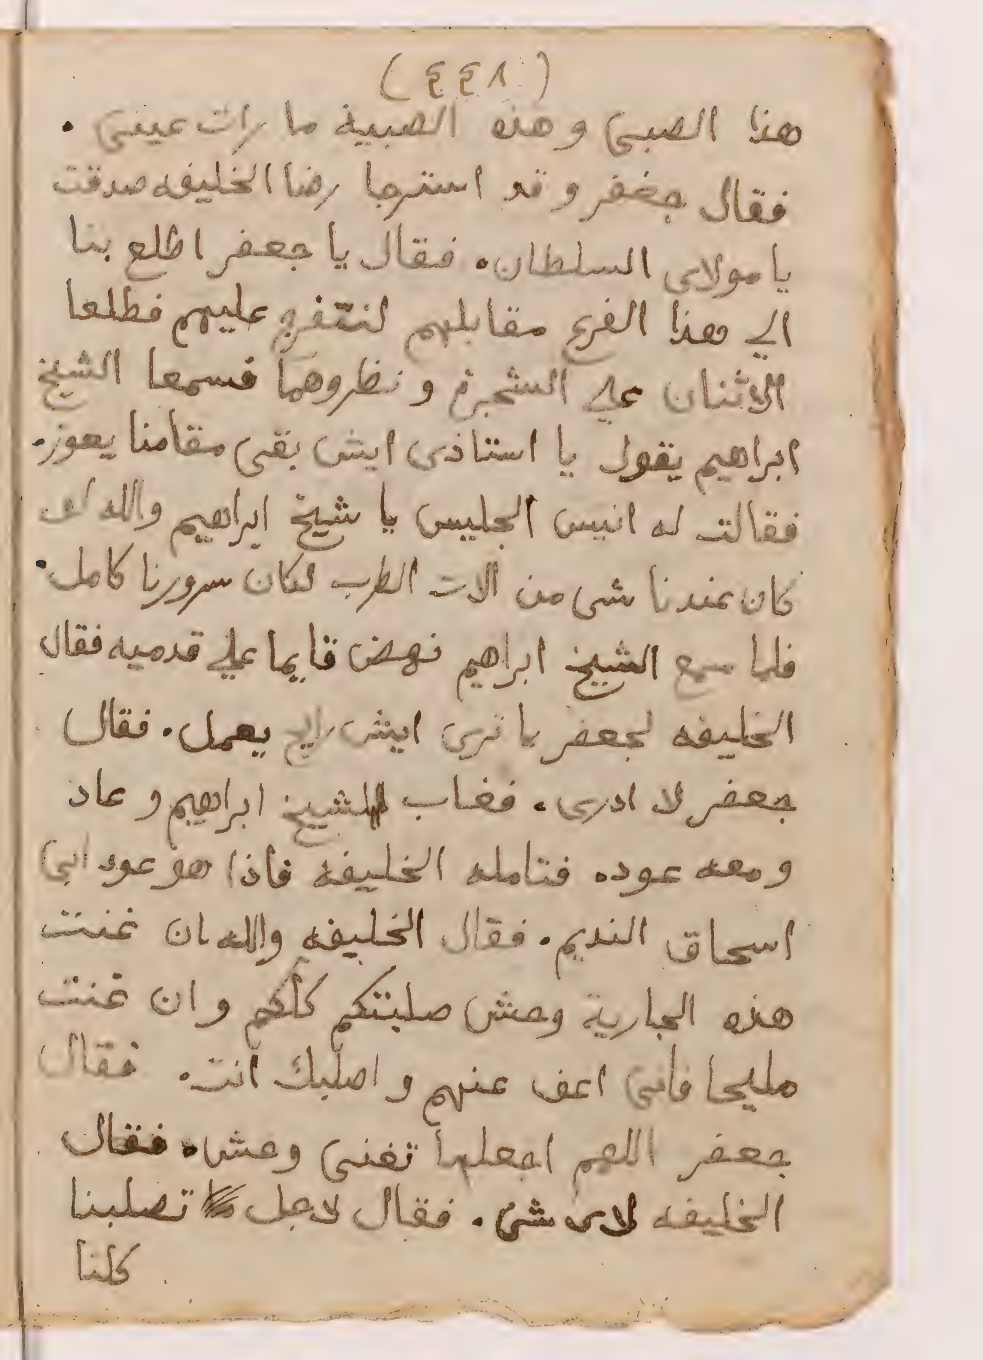 (٤٤٨)
هذا الصبى وهذه الصبية ما رات عينى .
فقال جعفر وقد استرجا رضا الخليفه صدقت
يا مولاى السلطان. فقال يا جعفر اطلع بنا
الي هذا الفرع مقابلهم لنتفرج عليهم فطلعا
الاثنان علي الشجرة ونظروهما فسمعا الشيخ
ابراهيم يقول يا استاذى ايش بقى مقامنا يعوز.
فقالت له انيس الجليس يا شيخ ابراهيم والله لو
كان عندنا شى من الات الطرب لكان سرورنا كامل.
فلما سمع الشيخ ابراهيم نهض قايما علي قدميه فقال
الخليفه لجعفر يا ترى ايش رايح يعمل. فقال
جعفر لا ادرى. فغاب الشيخ ابراهيم وعاد
ومعه عوده فتامله الخليفه فاذا هو عود ابى
اسحاق النديم. فقال الخليفه والله ان غنت
هذه الجارية وحش صلبتكم كلكم وان غنت
مليحا فانى اعف عنهم واصلبك انت. فقال
جعفر اللهم اجعلها تغنى وحش. فقال
الخليفه لاى شى. فقال لاجل تصلبنا
كلنا